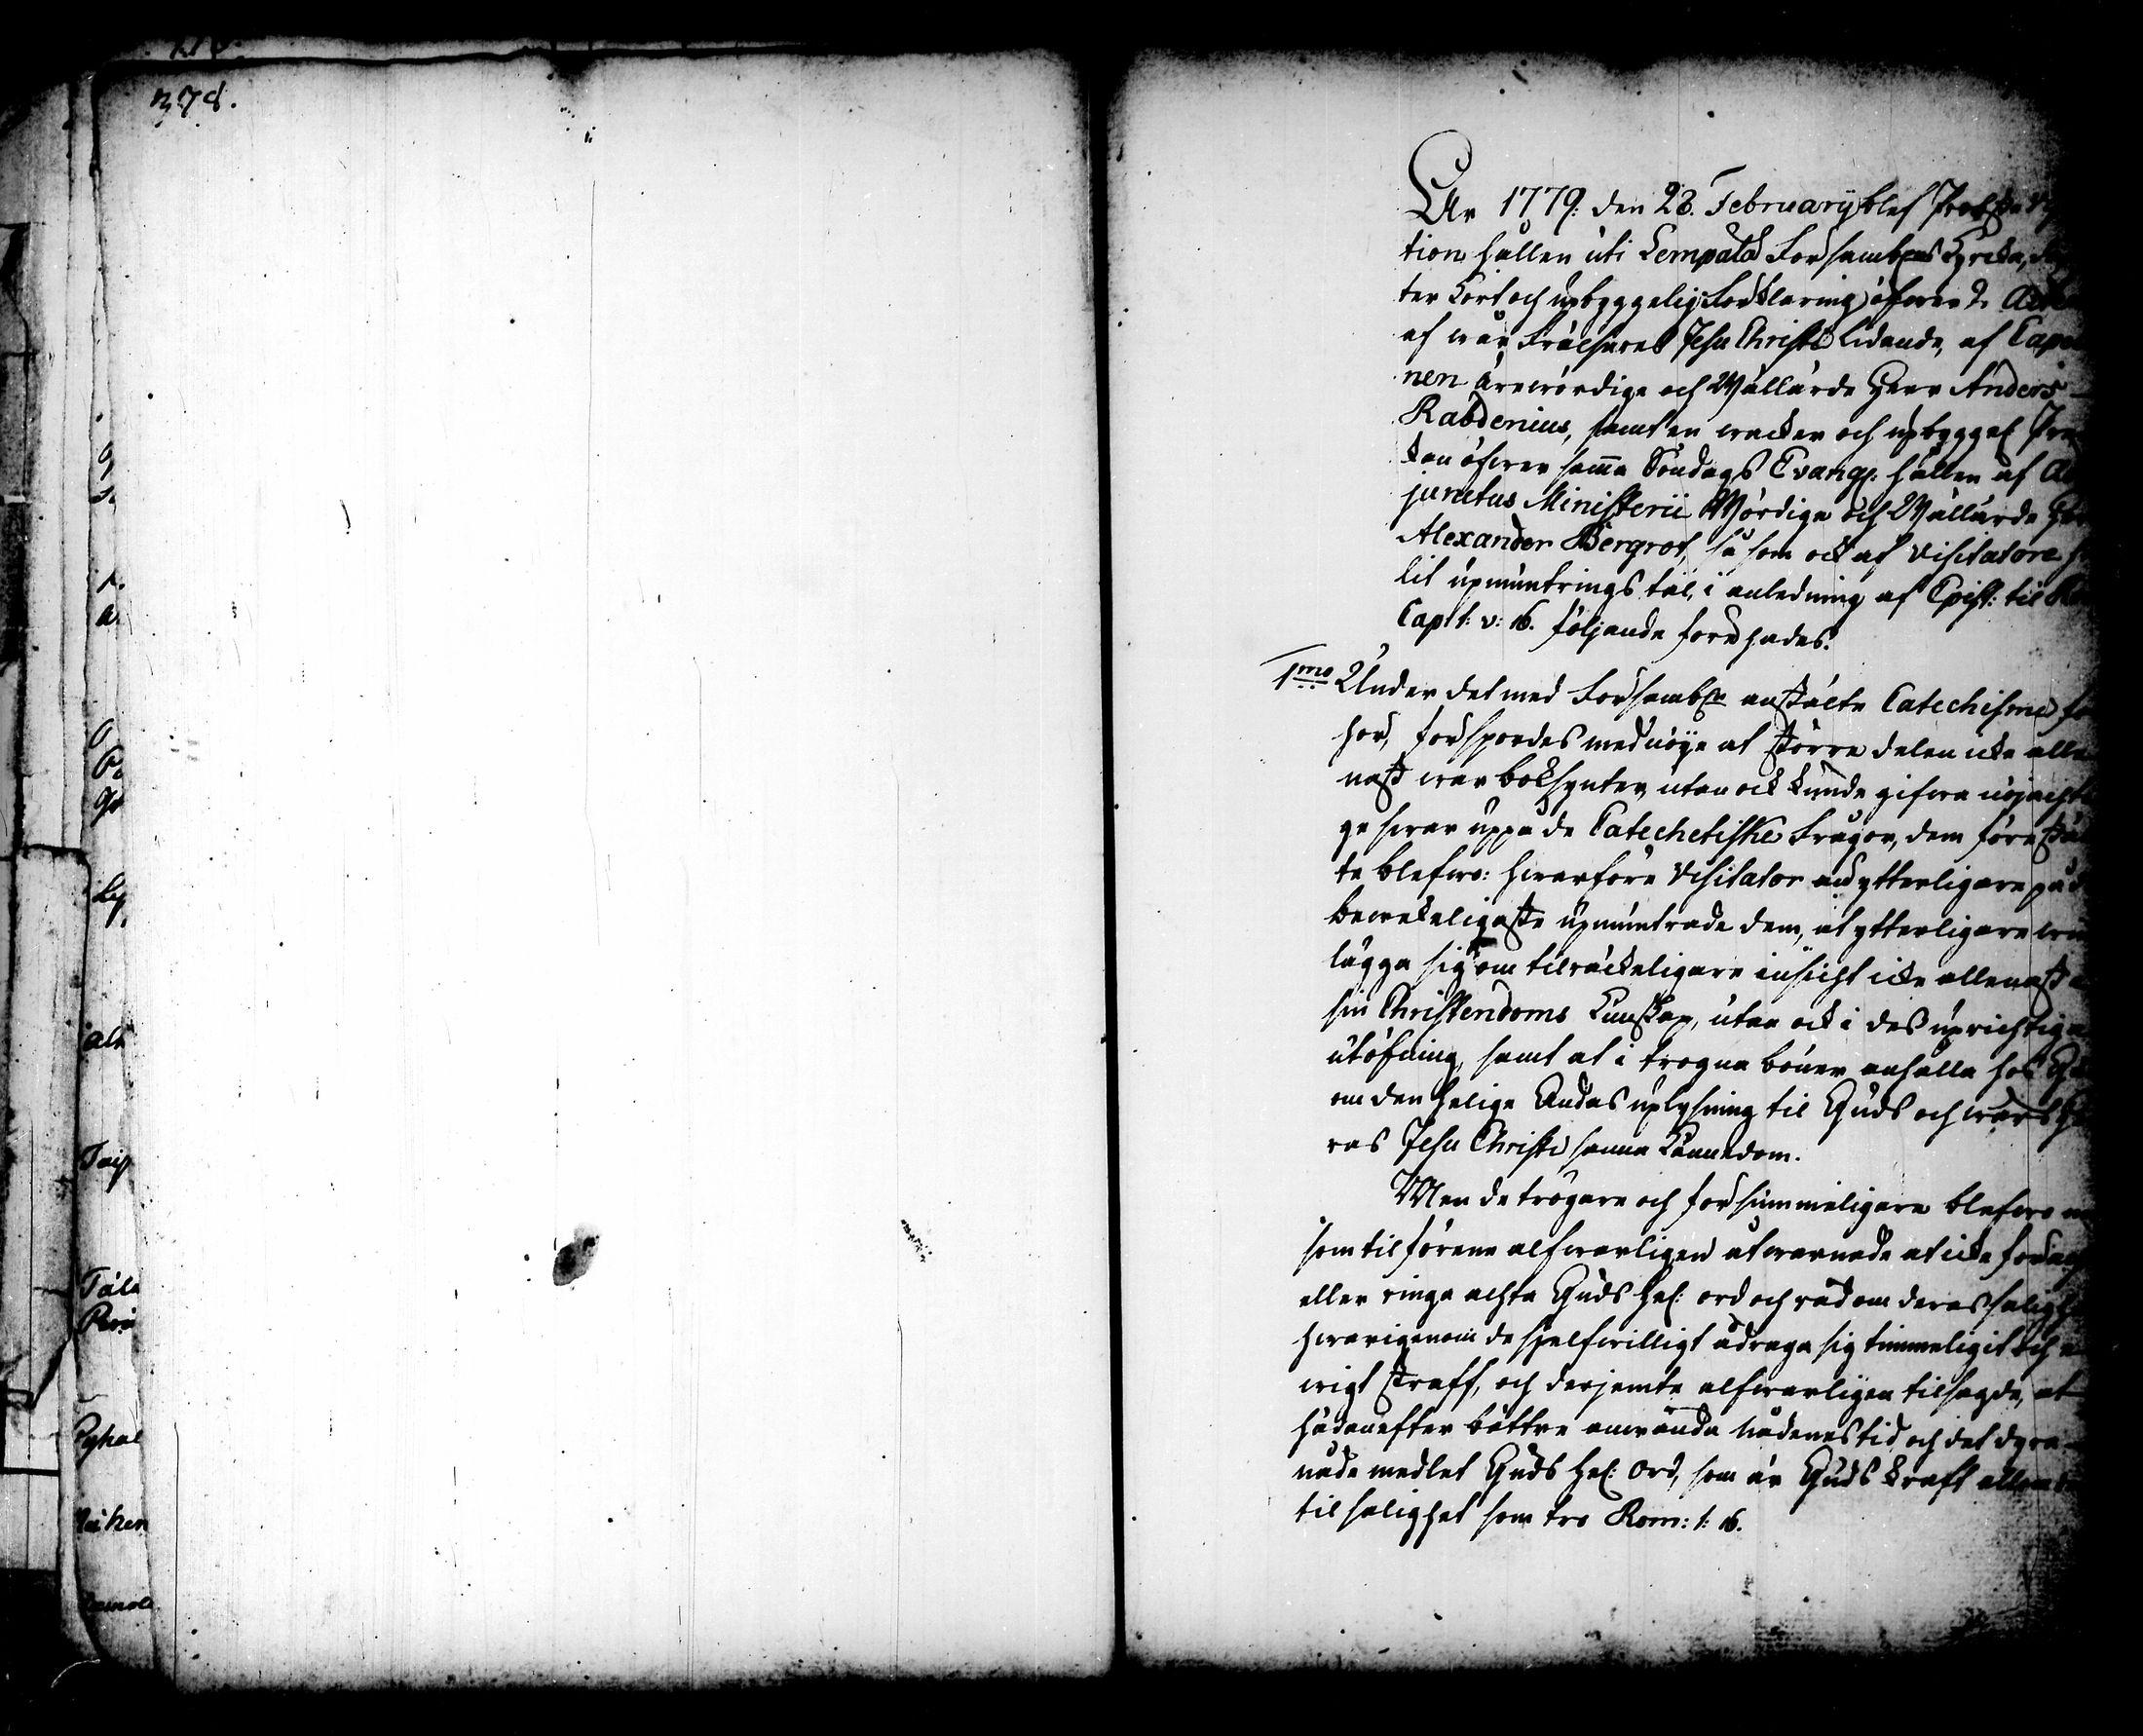 378.
År 1779: den 28. Februarÿ blef Probste
tion hållen uti Lempälä Församlgens Kyrcka,
ter Kort och upbyggelig Förklaring öfwer 2. Acten
af wår Frälsares Jesu Christi Lidande, af Capella
nen ärewördige och Wällärde Herr Anders
Rabdenius, samt en wacker och upbyggel Pre
kan öfwer sama Söndags Evangl. hållen af Ad
junctus Ministerii Wördige och Wällärde Herr
Alexander Bergrot, så som ock af Visitatore
lit upmuntrings tal, i anledning af Epist: til Rom
Cap 1: v: 16. följande förehades.
1mo Under det med Församlen anstälte Catechismi för
hör, förspordes med nöye at större delen icke alle
nast war boksynter, utan ock kunde gifwa nöjachti
ge swar uppå de Catechetiske Frågor, dem förestäl
te blefwo: hwarföre Visitator än ytterligare på
bewekeligaste upmuntrade dem, at ytterligare win
lägga sig om tilräckeligare insicht icke allenast
sin Christendoms Kunskap, utan ock i des uprichtiga
utöfning, samt at i trogna böner anhålla hos Gud
om den Helige Andas uplysning til Guds och wårs Her
ras Jesu Christi sanna Kännedom.
Men de trögare och försummeligare blefwo
som tilförene alfwarligen utwarnade at icke förach
eller ringa achta Guds Hel: ord och råd om deras salighet
hwarigenom de sjelfwilligt ådraga sig timmeligit och e
wigt straff, och derjemte alfwarligen tilsagde, at
hädanefter bättre använda Nådenes tid och det dyra
nåde medlet Guds Hel: Ord, som är Guds kraft allom
til salighet som tro Rom: 1: 16.
Ly
Alt
Taip
Täla
Pyhäl